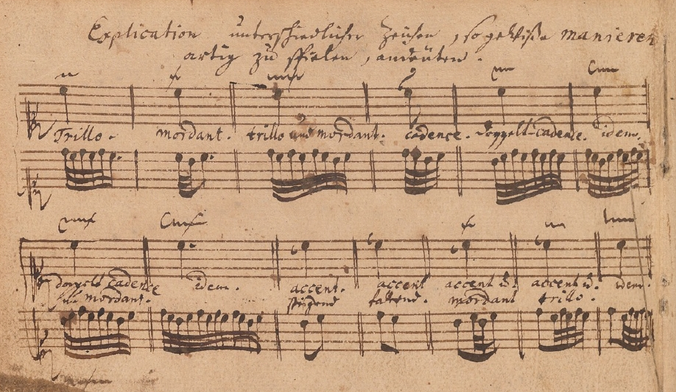 Explication unterschiedlicher Zeichen, so gewiße manieren
artig zu spielen, andeuten.
Trillo. mordant. trillo und mordant. cadence. doppelt-cadence. idem.
doppelt cadence idem. accent accent accent ü. accent ü. idem.
mordant. steigend fallend. mordant trillo.